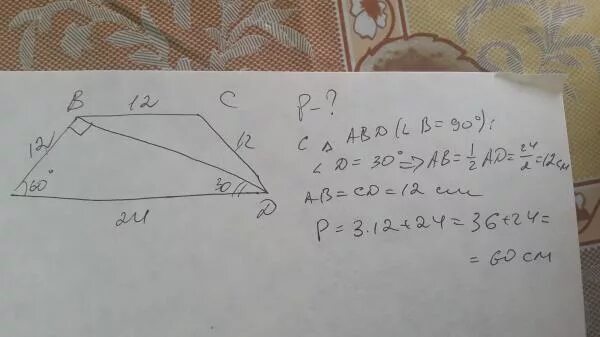 B 12 C
12 12
60° 30 D
24
P - ?
С △ ABD (∠ B = 90°):
∠ D = 30° ⇒ AB = 1/2 AD = 24/2 = 12 см
AB = CD = 12 см
P = 3·12 + 24 = 36 + 24 =
= 60 см